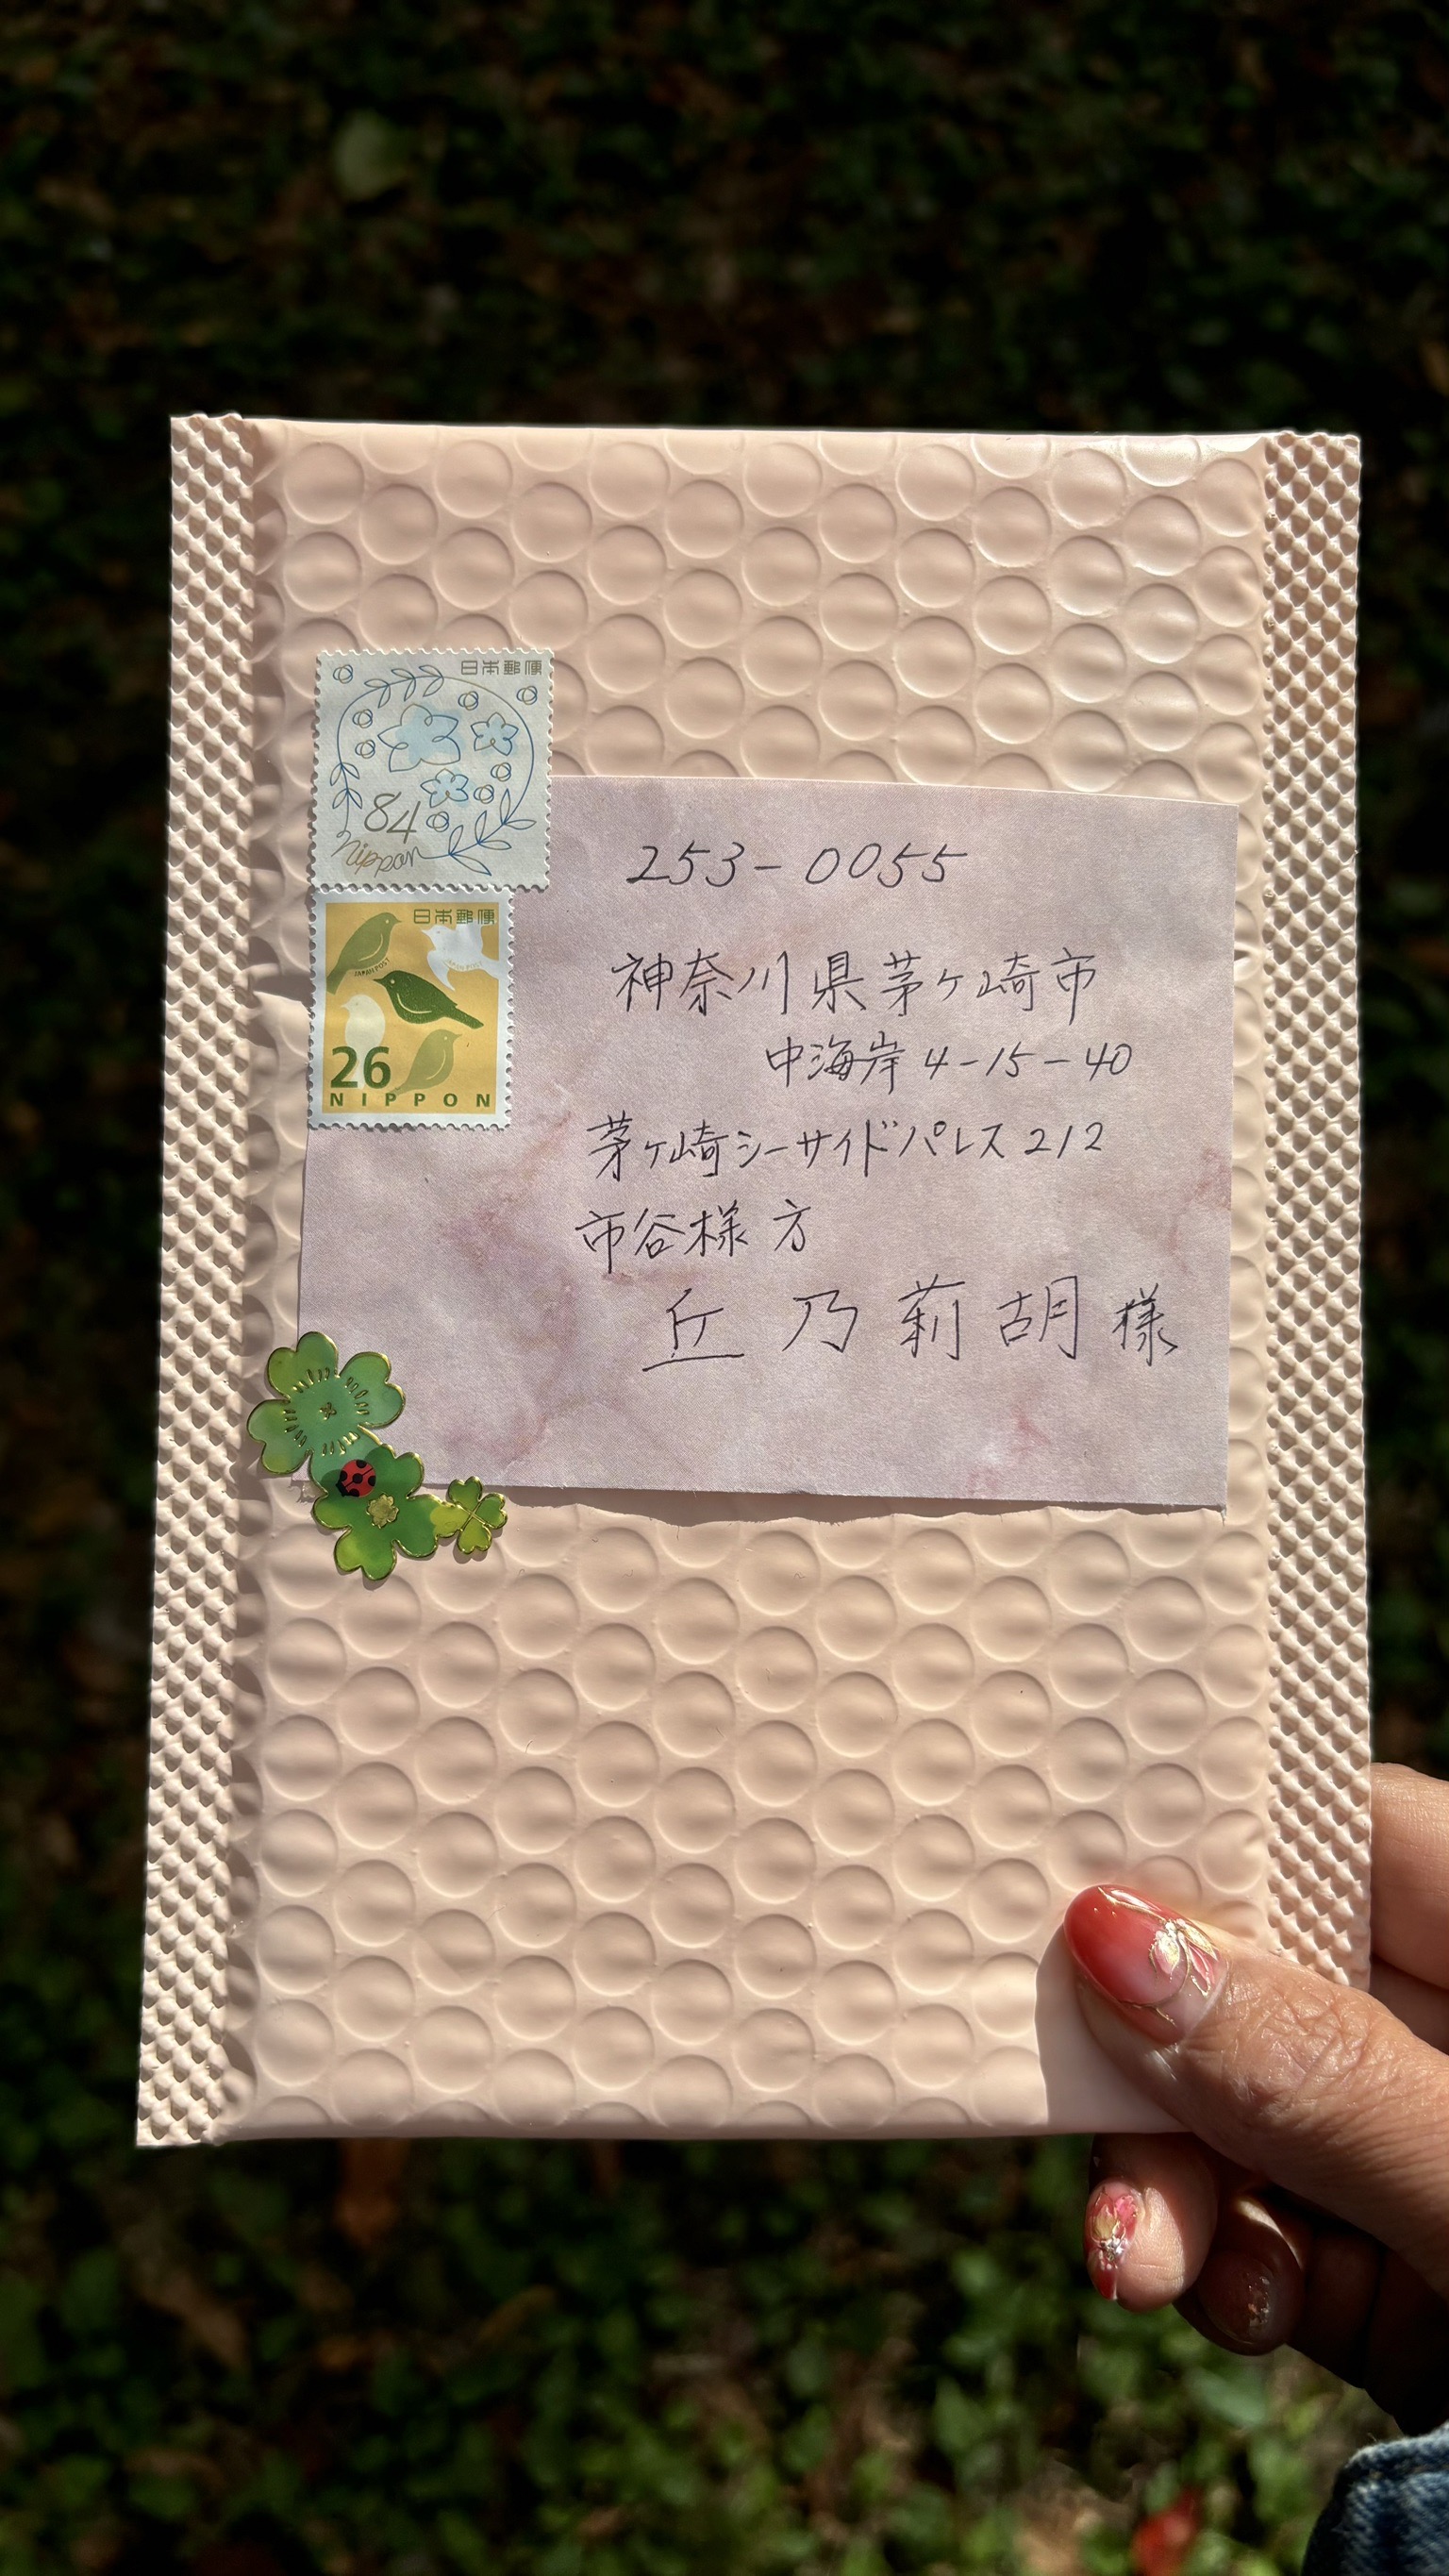 日本郵便
84
nippon
日本郵便
JAPAN POST
JAPAN POST
26
NIPPON
253-0055
神奈川県茅ヶ崎市
中海岸4-15-40
茅ヶ崎シーサイドパレス212
市谷様方
丘乃莉胡様